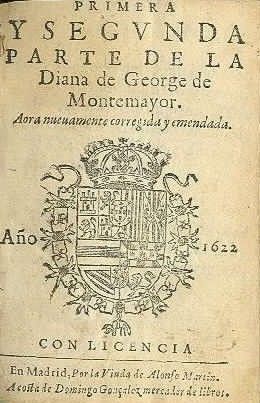 PRIMERA
Y SEGVNDA
PARTE DE LA
Diana de George de
Montemayor.
Aora nueuamente corregida y emendada.
Año 1622
CON LICENCIA
En Madrid, Por la Viuda de Alonso Martin.
A costa de Domingo Gonçalez mercader de libros.